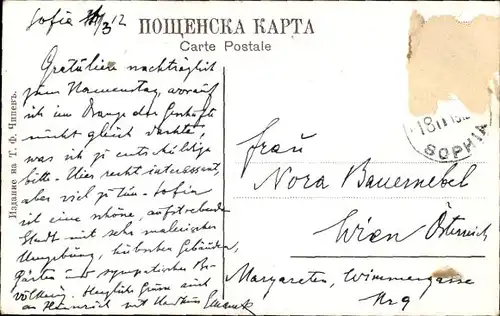 Sofia /3 12
ПОЩЕНСКА КАРТА
Carte Postale
Издание на Т. Ф. Чипевъ.
Gratuliere nachträglich
zum Namenstag, worauf
ich im Drange der Geschäfte
nicht gleich dachte,
was ich zu entschuldigen
bitte. Hier recht interessant,
aber viel zu tun. Sofia
ist eine schöne, aufstrebende
Stadt mit sehr malerischer
Umgebung, hübschen Gebäuden,
Gärten und sympatischer Be-
völkerung. Herzliche Grüsse auch
an Heinrich mit
SOPHIA
Frau
Nora Bauernebel
Wien Österreich
Margareten, Wimmergasse
Nr 9